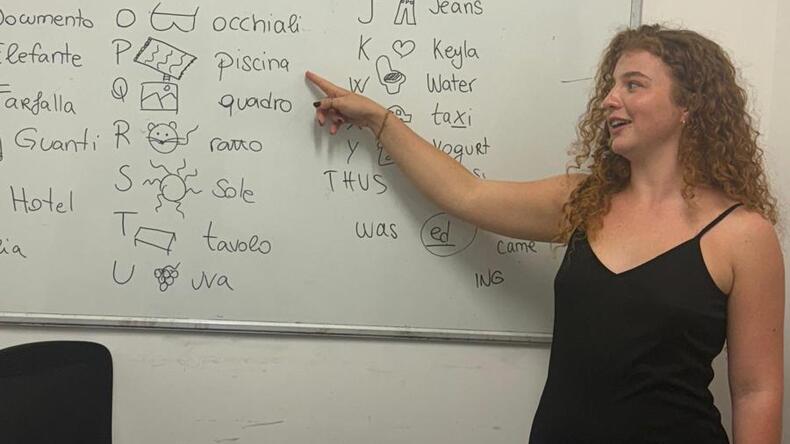 Documento
Elefante
Farfalla
Guanti
Hotel
O occhiali
P piscina
Q quadro
R ratto
S Sole
T tavolo
U uva
J Jeans
K Keyla
W Water
taxi
Y Yogurt
THUS
was ed came
ING